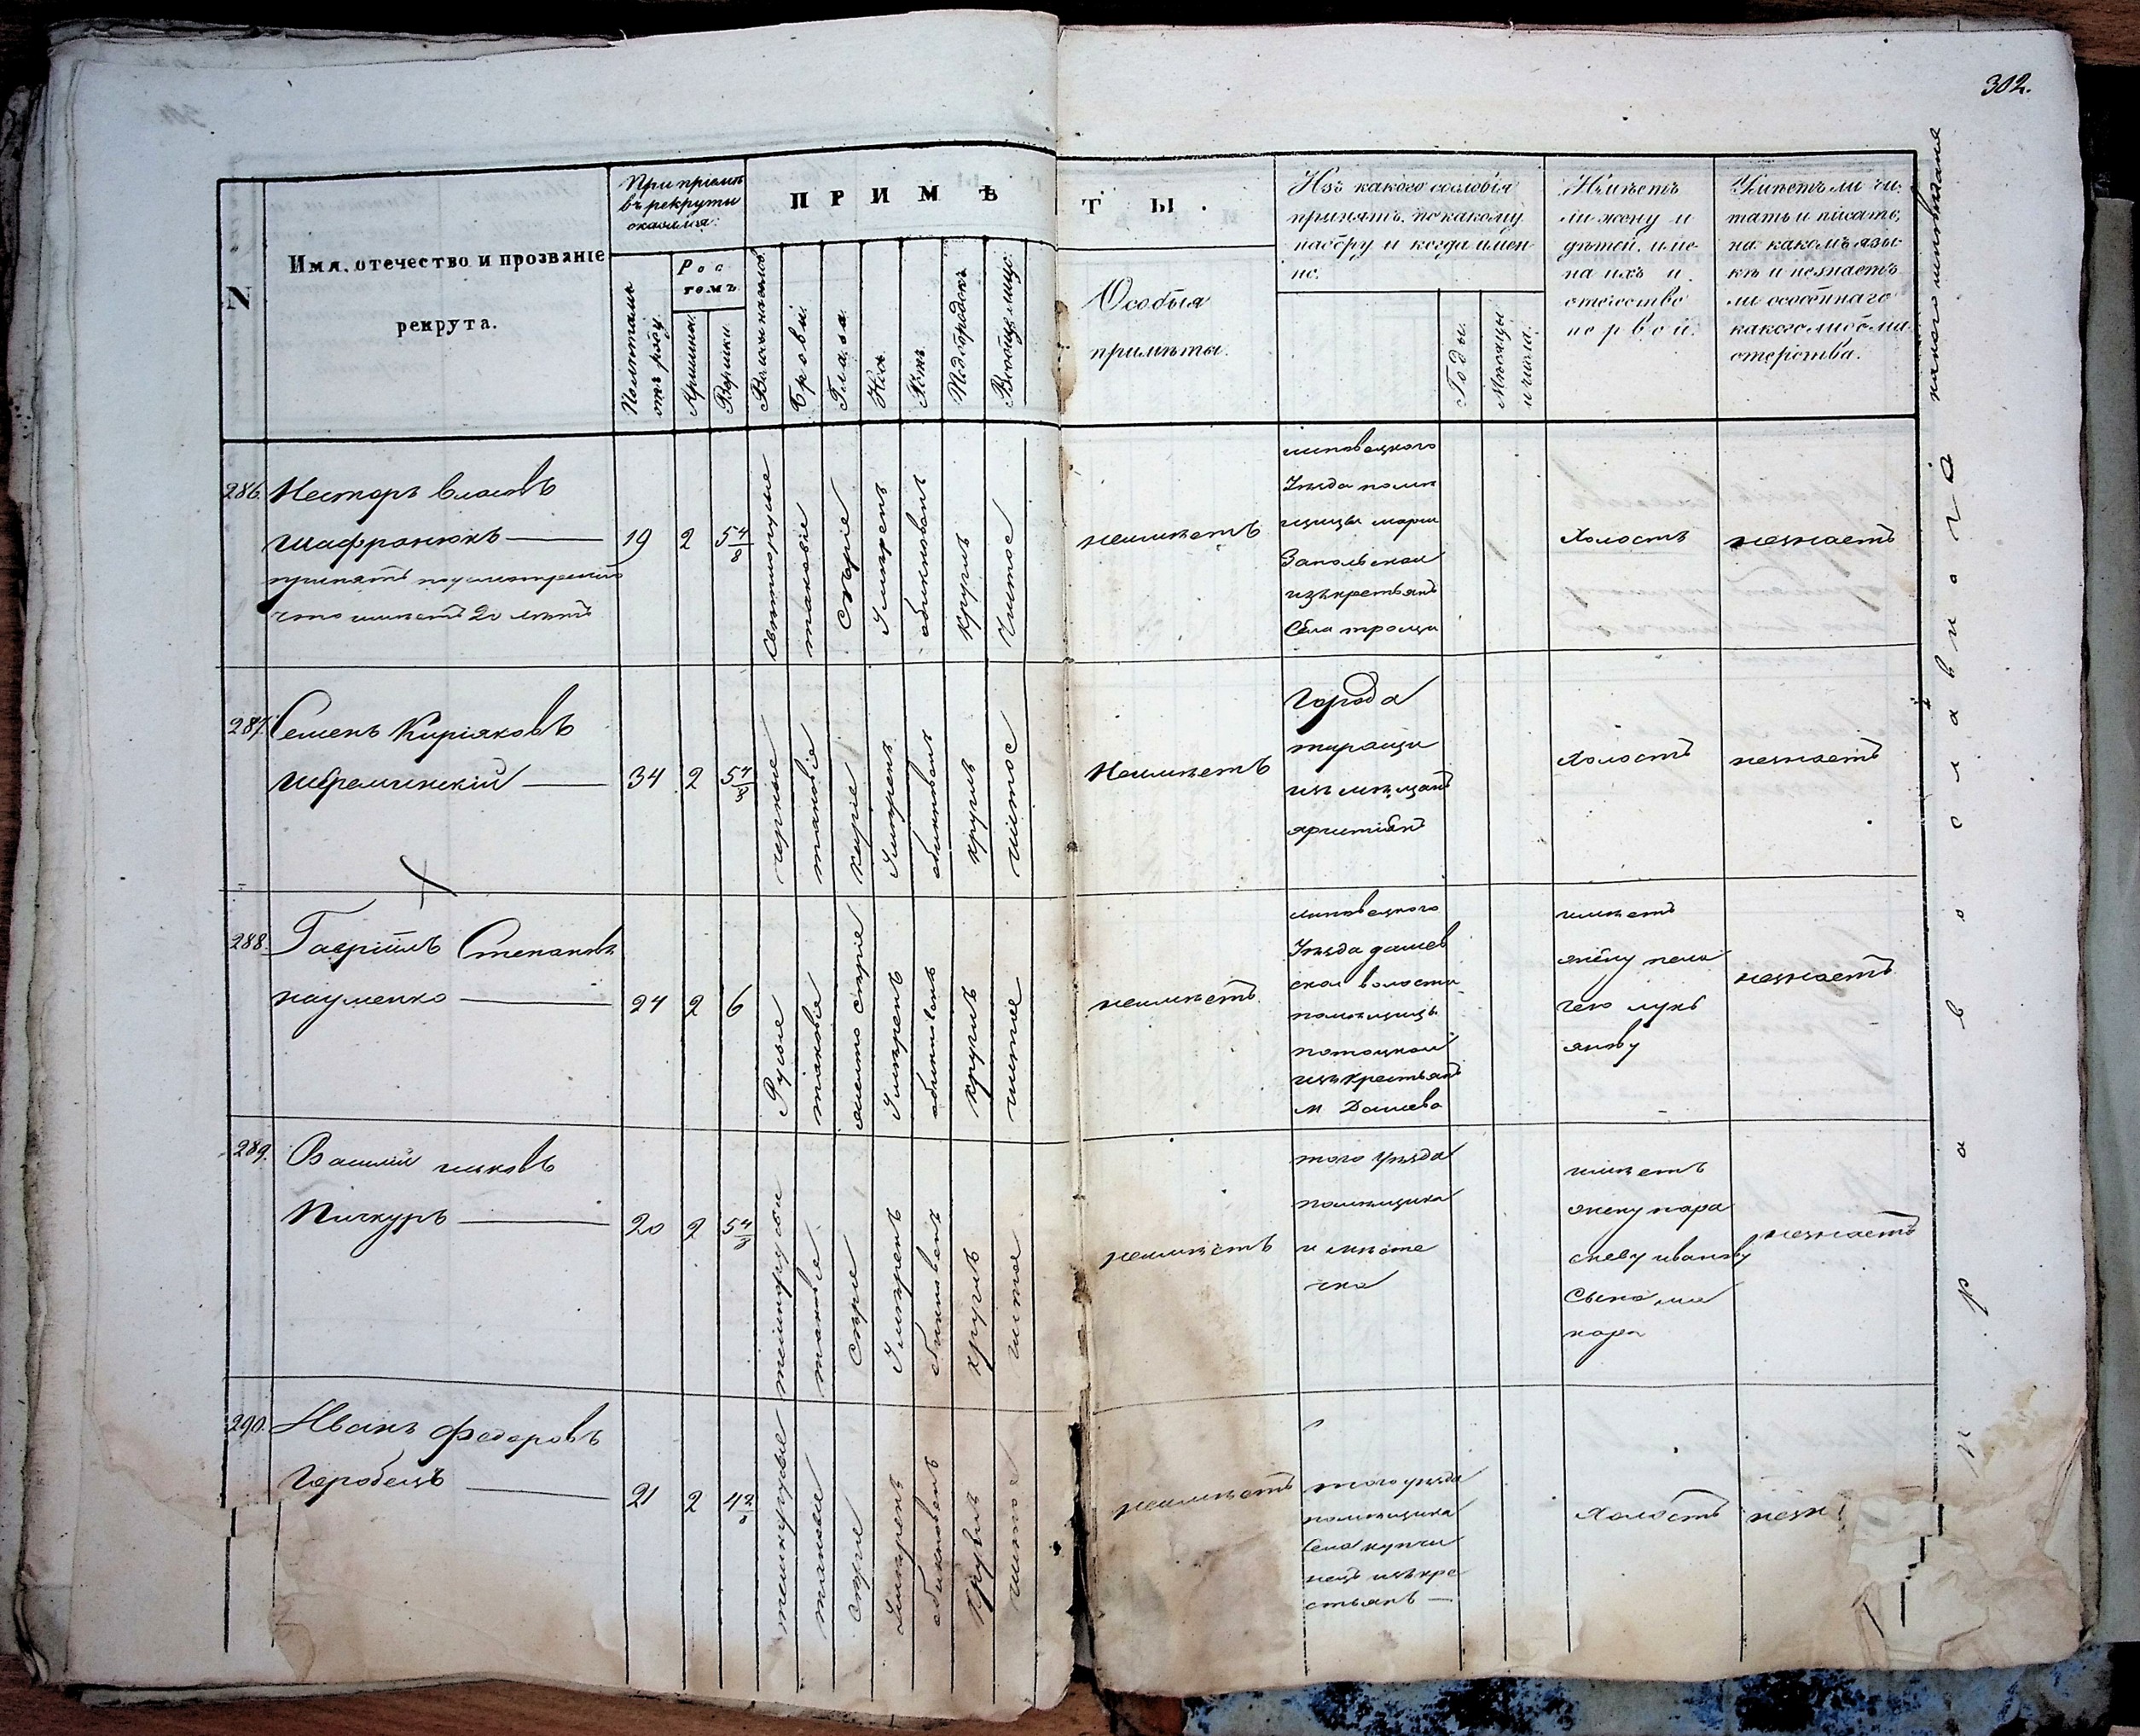 302.
N
Имя, отечество и прозваніе
рекрута.
При пріемѣ
въ рекруты
оказался:
Полѣтамъ
отъ роду.
Рос
томъ.
Аршины.
Вершки.
ПРИМѢ
ТЫ.
Волосы на головѣ.
Брови.
Глаза.
Носъ.
Ротъ.
Подбородокъ.
Вообще лице:
Особыя
примѣты.
Изъ какого сословія
принятъ, по какому
набору и когда имен-
но.
Годы.
Мѣсяцы
и числа.
Имѣетъ
ли жену и
дѣтей, име-
на ихъ и
отечество
первой.
Умѣетъ ли чи-
тать и писать,
на какомъ язы-
кѣ и незнаетъ
ли особеннаго
какого либо ма-
стерства.
286.
Несторъ Власовъ
Шафранюкъ
принятъ по усмотренію
что имѣетъ 20 лѣтъ
19
2
5 4/8
Свѣтлорусые
таковіе
Сѣріе
Умѣренъ
обыкновенъ
круглъ
Чистое
неимѣетъ
липовецкого
Уѣзда помѣ
щицы маріи
Запольской
изъ крестьянъ
Села трощи
Холостъ
незнаетъ
287.
Семенъ Киріяковъ
34
2
5 4/8
черные
таковіе
каріе
Умѣренъ
обыкновенъ
круглъ
чистое
Неимѣетъ
Города
таращи
изъ мѣщанъ
Холостъ
незнаетъ
288.
Гавріилъ Степановъ
науменко
24
2
6
Русые
таковіе
желто сѣріе
Умѣренъ
обыкновенъ
круглъ
чистое
неимѣетъ
липовецкого
Уѣзда дашев
ской волости
помѣщицы
потоцкой
изъ крестьянъ
м Дашева
имѣетъ
жену пела
гею лукь
янову
незнаетъ
289.
Василій
Пичкуръ
20
2
5 4/8
темнорусые
таковіе
Сѣріе
Умѣренъ
обыкновенъ
круглъ
чистое
неимѣетъ
того уѣзда
помѣщика
и мѣсте
чка
имѣетъ
жену пара
скеву иванову
Сына ма
кара
незнаетъ
290.
Иванъ Федоровъ
Горобецъ
21
2
4 2/8
темнорусые
таковіе
сѣріе
Умѣренъ
обыкновенъ
круглъ
чистое
неимѣетъ
того уѣзда
помѣщика
Села купчи
нецъ изъ кре
стьянъ
Холостъ
незн
православного